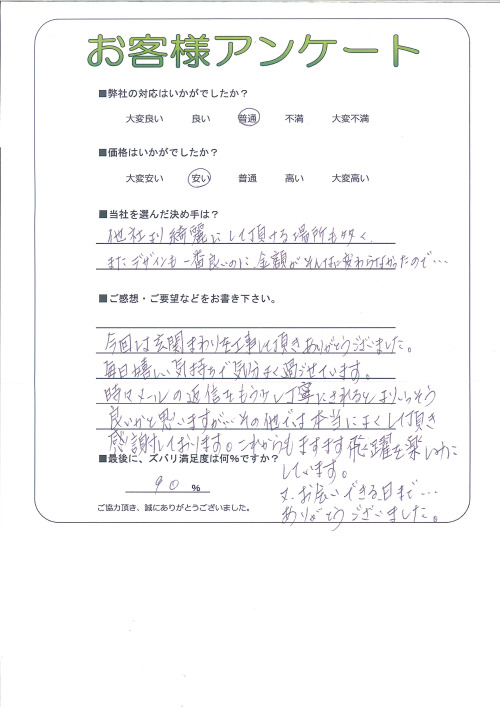 お客様アンケート
■弊社の対応はいかがでしたか？
大変良い 良い 普通 不満 大変不満
■価格はいかがでしたか？
大変安い 安い 普通 高い 大変高い
■当社を選んだ決め手は？
他社より綺麗にして頂ける場所も多く、
またデザインも一番良いのに、金額がそんなに変わらなかったので…
■ご感想・ご要望などをお書き下さい。
今回は玄関まわりを工事して頂きありがとうございました。
毎日嬉しい気持ちで気分よく過ごせています。
時々メールの返信をもう少し丁寧にされるとよりいっそう
良いかと思いますが…その他では本当によくして頂き
感謝しております。これからもますます飛躍を楽しみに
しています。
■最後に、ズバリ満足度は何％ですか？
90 ％
又、お会いできる日まで…
ありがとうございました。
ご協力頂き、誠にありがとうございました。